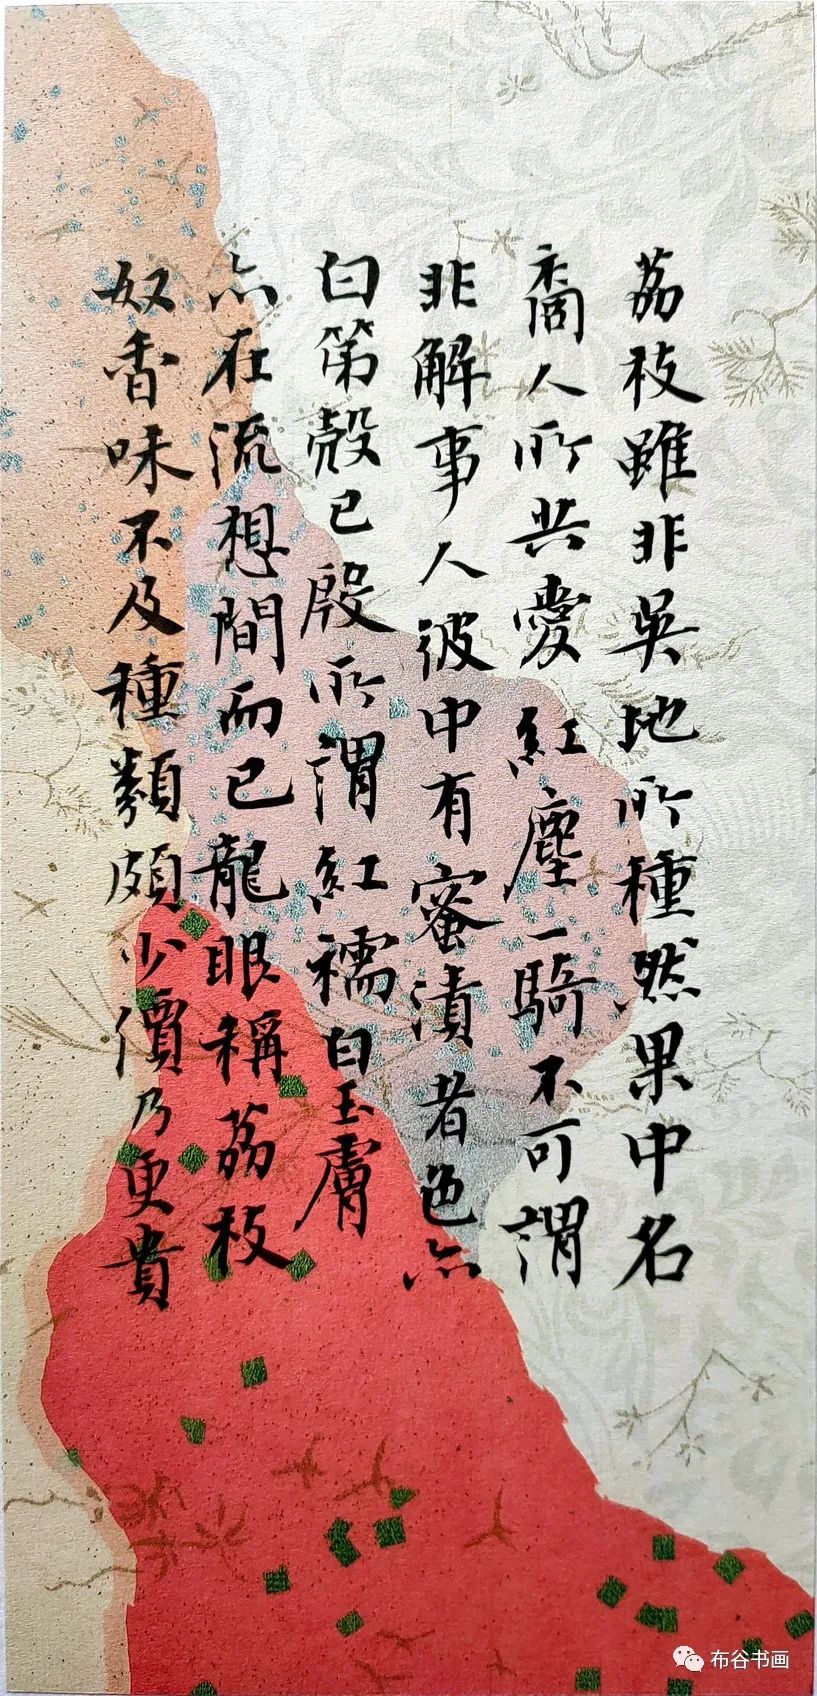 荔枝雖非吳地所種然果中名
裔人所共愛紅塵一騎不可謂
非解事人彼中有蜜漬者色亦
白第殼已殷所謂紅襦白玉膚
亦在流想間而已龍眼稱荔枝
奴香味不及種類頗少價乃更貴
布谷书画